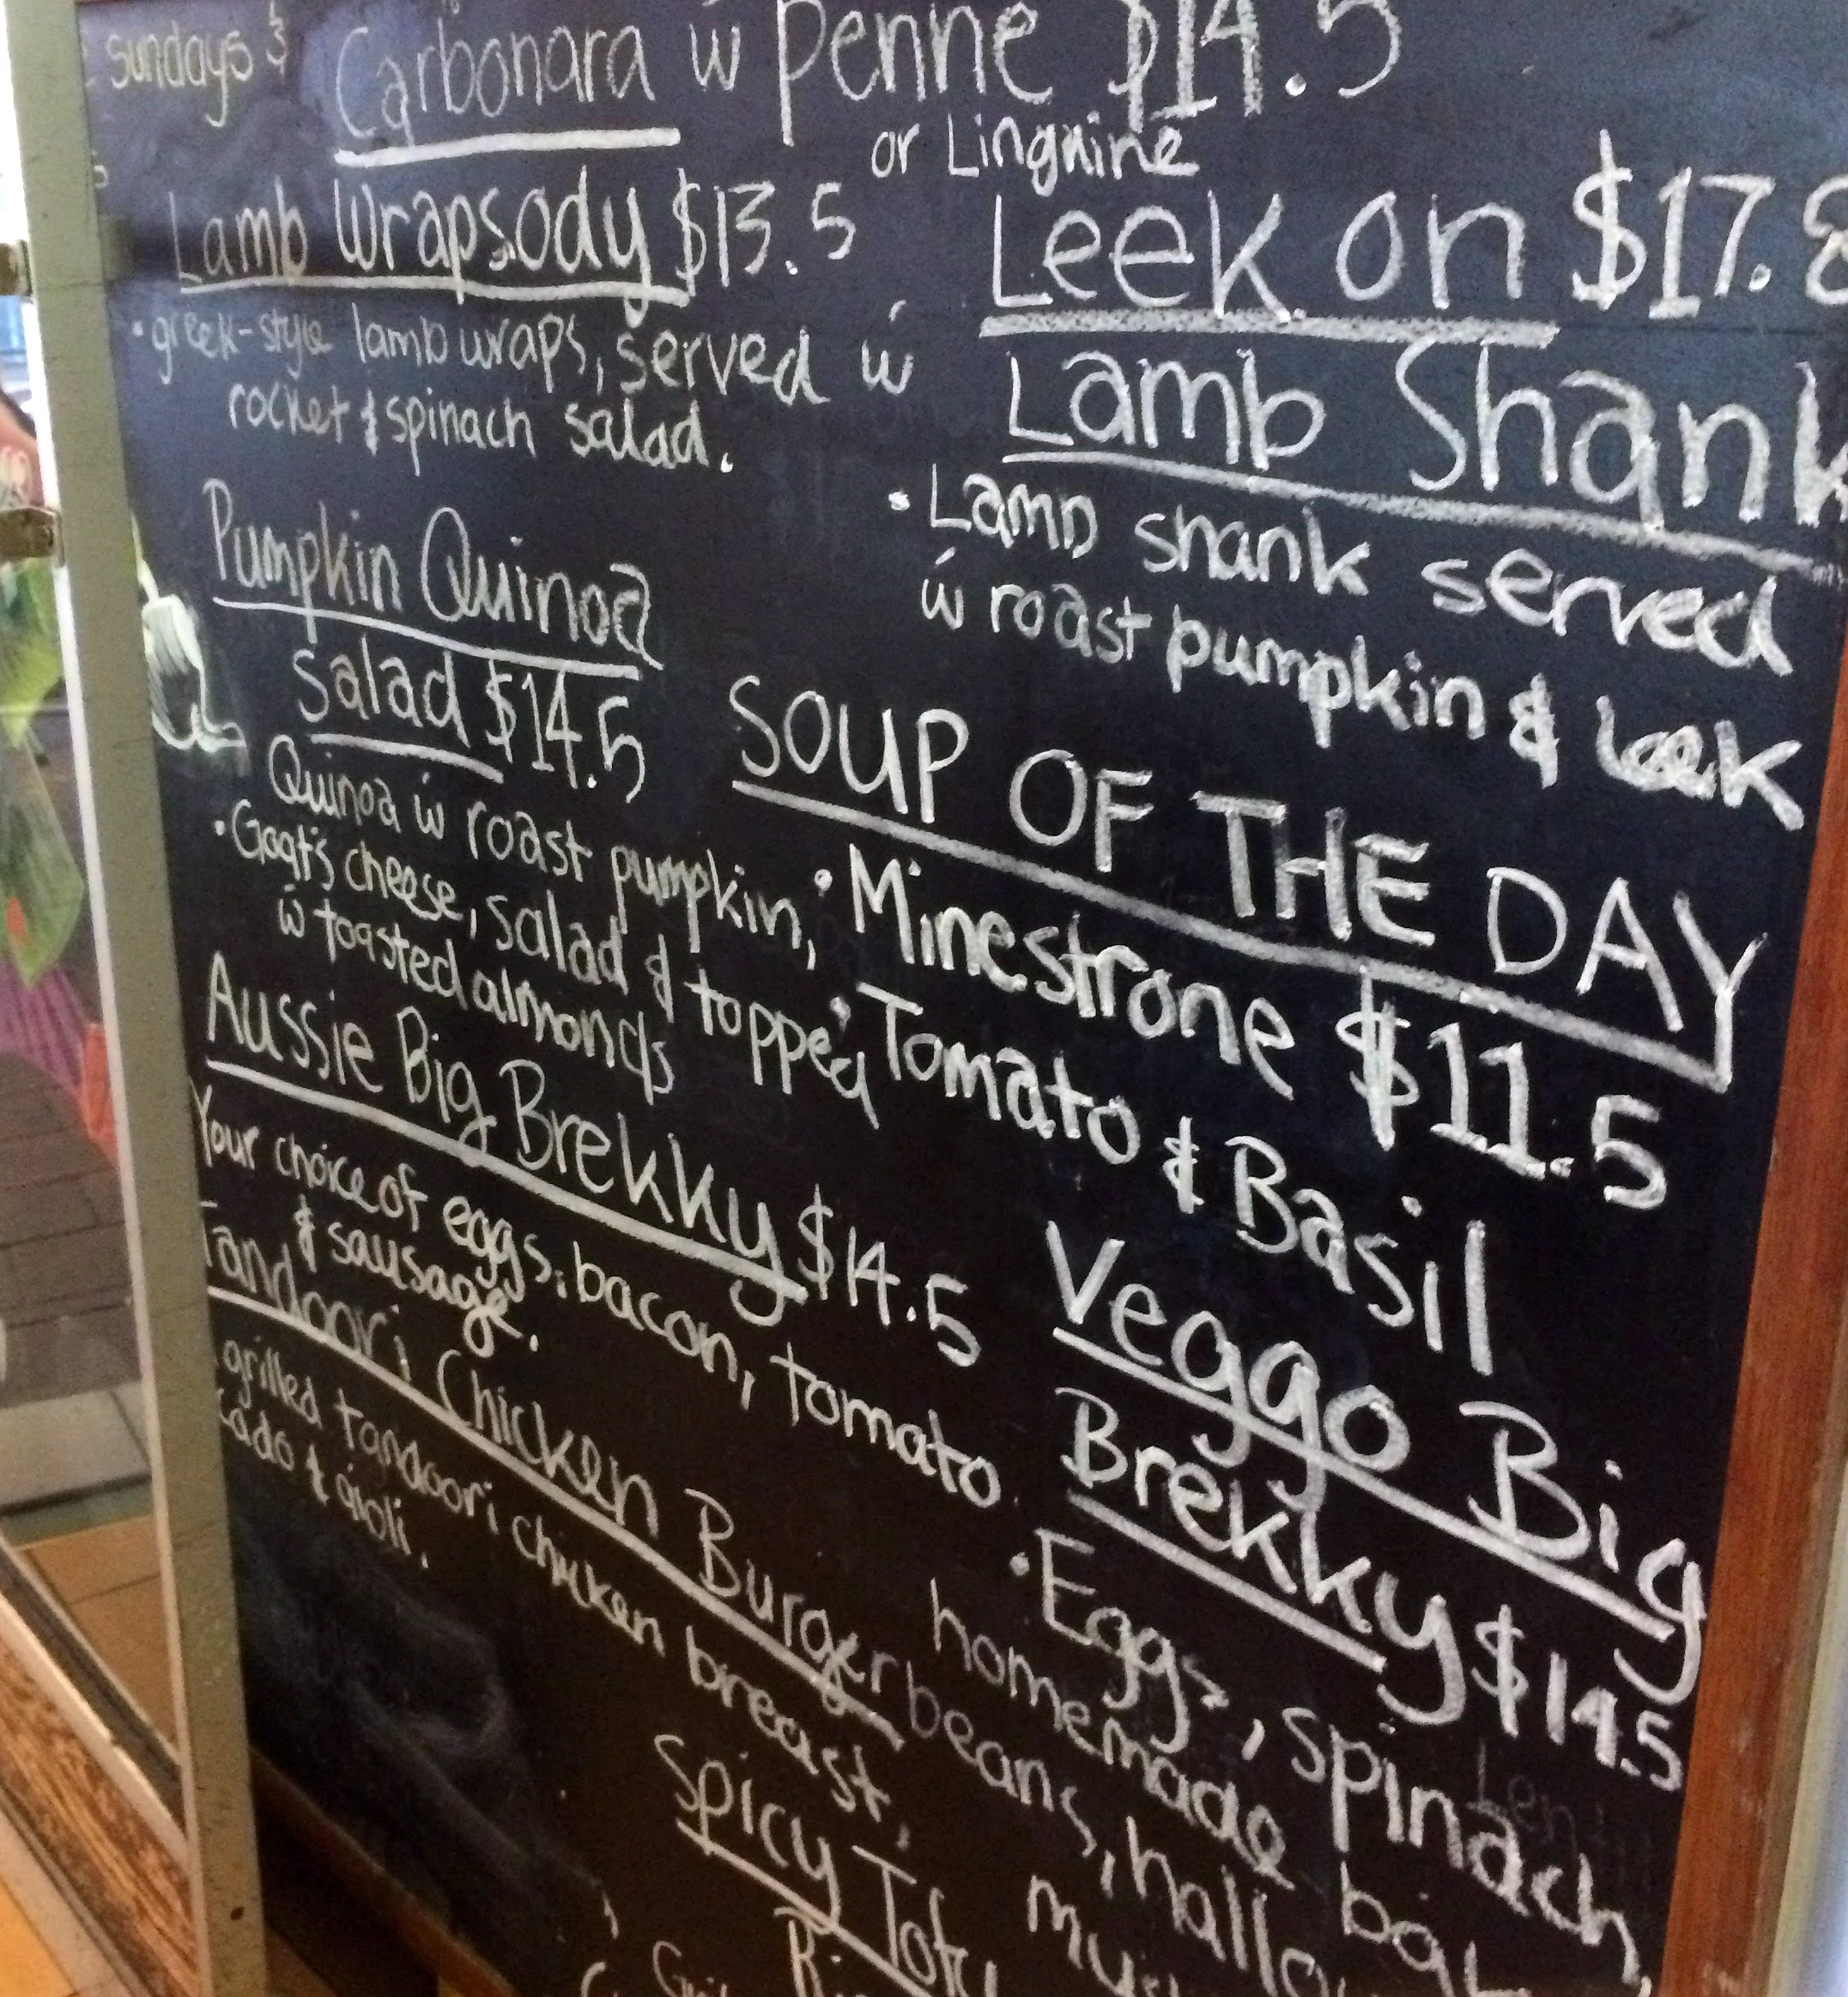 sundays &
Carbonara w penne $14.5
or Linguine
Lamb Wrapsody $13.5
• greek-style lamb wraps, served w
rocket & spinach salad.
Leek on $17.8
Lamb Shank
• Lamb shank served
w roast pumpkin & leek
Pumpkin Quinoa
salad $14.5
Quinoa w roast pumpkin,
• Goat's cheese, salad & topped
w toasted almonds
SOUP OF THE DAY
• Minestrone $11.5
• Tomato & Basil
Aussie Big Brekky $14.5
Your choice of eggs, bacon, tomato
& sausage.
Veggo Big
Brekky $14.5
• Eggs, spinach,
homemade
beans,
Tandoori Chicken Burger
grilled tandoori chicken breast,
& aioli.
Spicy Tofu